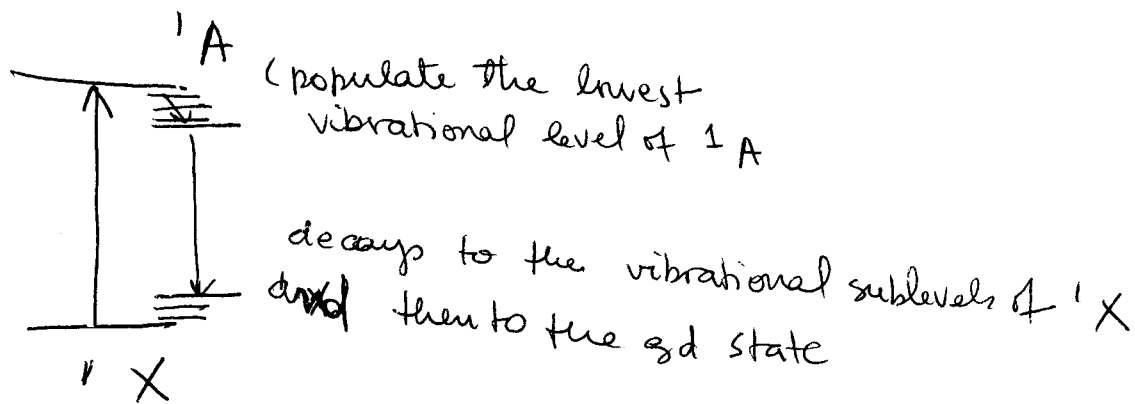 ¹A
(populate the lowest
vibrational level of ¹A
decays to the vibrational sublevels of ¹X
and then to the gd state
¹X